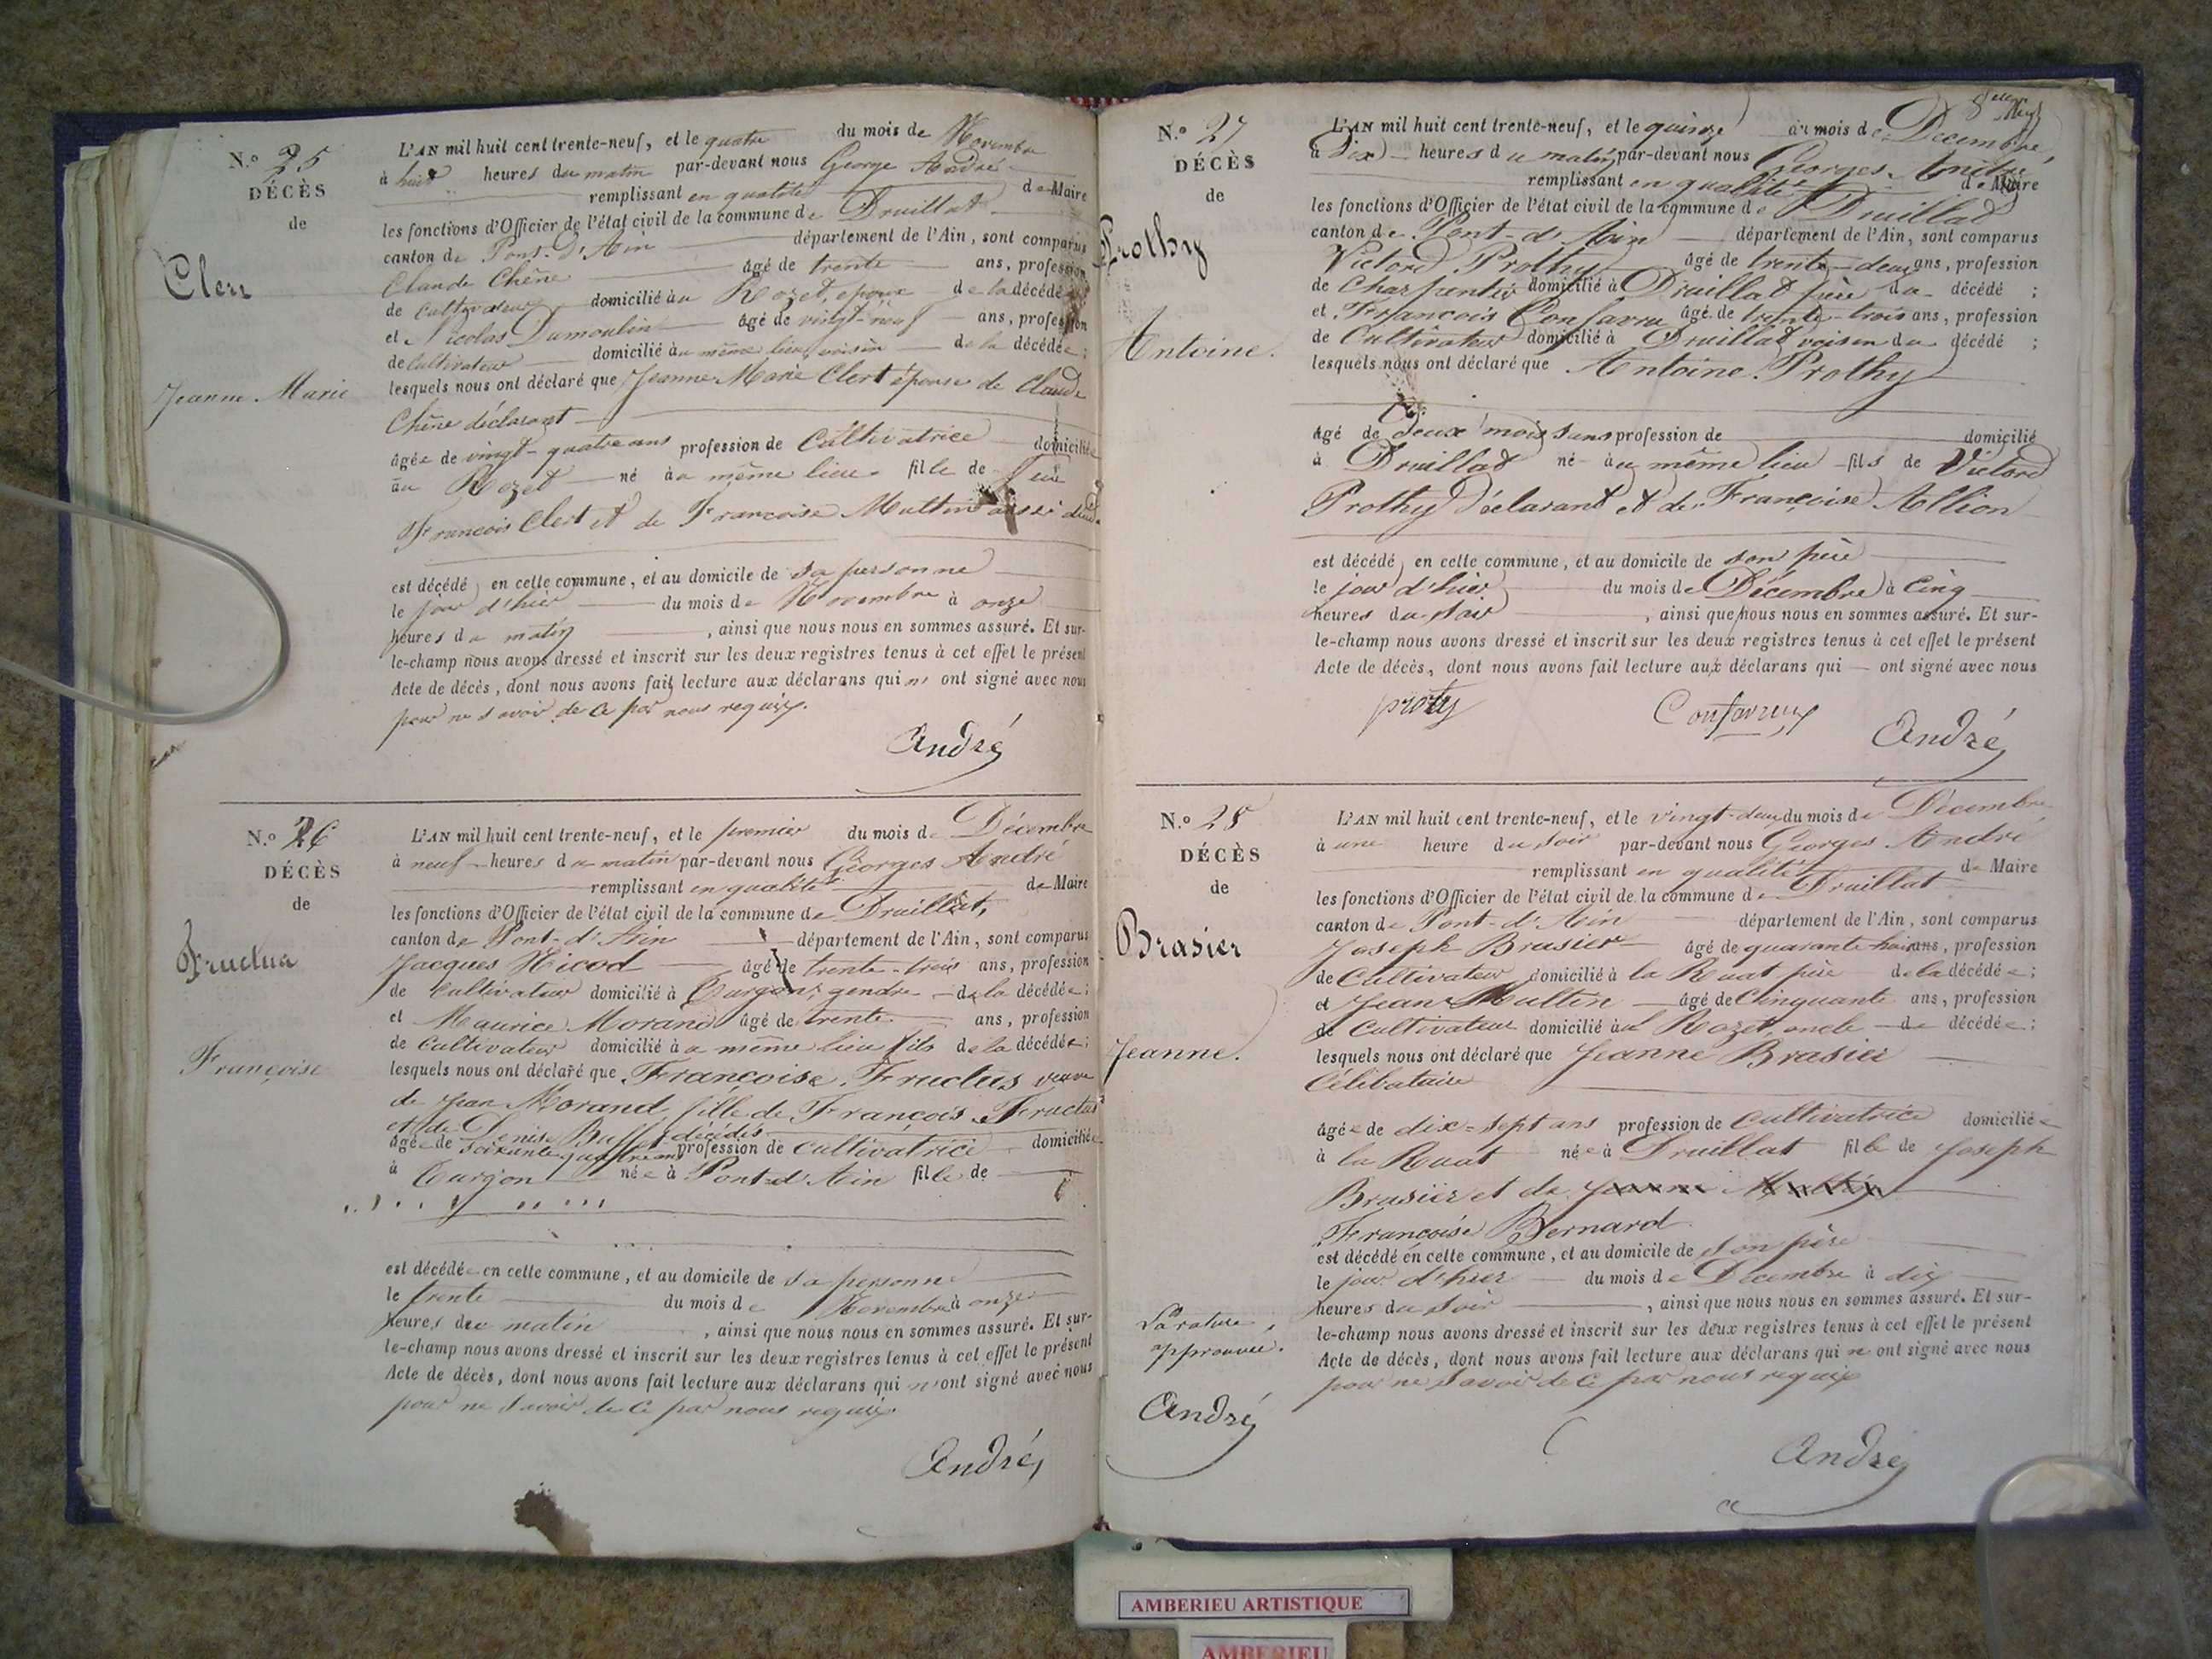 N.° 25
DÉCÈS
de
Clert
Jeanne Marie
L'AN mil huit cent trente-neuf, et le quatre du mois de Novembre
à huit heures du matin par-devant nous George André
remplissant en qualité de Maire
les fonctions d'Officier de l'état civil de la commune de Druillat
canton de Pont-d'Ain département de l'Ain, sont comparus
Claude Chêne âgé de trente ans, profession
de cultivateur domicilié au Rozet, époux de la décédée
et Nicolas Dumoulin âgé de vingt-neuf ans, profession
de Cultivateur domicilié au même lieu, voisin de la décédée;
lesquels nous ont déclaré que Jeanne Marie Clert épouse de Claude
Chêne déclarant
âgée de vingt-quatre ans profession de Cultivatrice domiciliée
au Rozet né au même lieu fille de feu
François Clert et de Françoise Multin aussi
est décédé en cette commune, et au domicile de sa personne
le jour d'hier du mois de Novembre à onze
heures du matin, ainsi que nous nous en sommes assuré. Et sur-
le-champ nous avons dressé et inscrit sur les deux registres tenus à cet effet le présent
Acte de décès, dont nous avons fait lecture aux déclarans qui n' ont signé avec nous
pour ne savoir de ce par nous requis.
André
N.° 26
DÉCÈS
de
Fructus
Françoise
L'AN mil huit cent trente-neuf, et le premier du mois de Décembre
à neuf heures du matin par-devant nous Georges André
remplissant en qualité de Maire
les fonctions d'Officier de l'état civil de la commune de Druillat,
canton de Pont-d'Ain département de l'Ain, sont comparus
Jacques Nicod âgé de trente-trois ans, profession
de cultivateur domicilié à Turgon, gendre de la décédée;
et Maurice Morand âgé de trente ans, profession
de cultivateur domicilié au même lieu fils de la décédée;
lesquels nous ont déclaré que Françoise Fructus veuve
de Jean Morand, fille de François Fructus
et de Denise Buffet décédés
âgée de soixante quatre ans profession de cultivatrice domiciliée
à Turgon née à Pont-d'Ain fille de
est décédée en cette commune, et au domicile de sa personne
le trente du mois de Novembre à onze
heures du matin, ainsi que nous nous en sommes assuré. Et sur-
le-champ nous avons dressé et inscrit sur les deux registres tenus à cet effet le présent
Acte de décès, dont nous avons fait lecture aux déclarans qui n'ont signé avec nous
pour ne savoir de ce par nous requis.
André
N.° 27
DÉCÈS
de
Prothy
Antoine.
L'AN mil huit cent trente-neuf, et le quinze du mois de Décembre,
à Dix heures du matin par-devant nous Georges André
remplissant en qualité de Maire
les fonctions d'Officier de l'état civil de la commune de Druillat
canton de Pont-d'Ain département de l'Ain, sont comparus
Victord Prothy âgé de trente-deux ans, profession
de Charpentier domicilié à Druillat père du décédé;
et François Confavreu âgé de trente-trois ans, profession
de Cultivateur domicilié à Druillat voisin du décédé;
lesquels nous ont déclaré que Antoine Prothy
âgé de deux mois sans profession de domicilié
à Druillat né au même lieu fils de Victord
Prothy déclarant et de Françoise Allion
est décédé en cette commune, et au domicile de son père
le jour d'hier du mois de Décembre à Cinq
heures du soir, ainsi que nous nous en sommes assuré. Et sur-
le-champ nous avons dressé et inscrit sur les deux registres tenus à cet effet le présent
Acte de décès, dont nous avons fait lecture aux déclarans qui ont signé avec nous
proty Confavreux André
N.° 28
DÉCÈS
de
Brasier
Jeanne.
La rature
approuvée.
André
L'AN mil huit cent trente-neuf, et le vingt-deux du mois de Décembre
à une heure du soir par-devant nous Georges André
remplissant en qualité de Maire
les fonctions d'Officier de l'état civil de la commune de Druillat
canton de Pont-d'Ain département de l'Ain, sont comparus
Joseph Brasier âgé de quarante huit ans, profession
de Cultivateur domicilié à la Ruat père de la décédée;
et Jean Multin âgé de Cinquante ans, profession
de Cultivateur domicilié au Rozet oncle de décédée;
lesquels nous ont déclaré que Jeanne Brasier
Célibataire
âgée de dix-sept ans profession de Cultivatrice domiciliée
à la Ruat née à Druillat fille de Joseph
Brasier et de Jeanne Multin
Françoise Bernard
est décédé en cette commune, et au domicile de son père
le jour d'hier du mois de Décembre à dix
heures du soir, ainsi que nous nous en sommes assuré. Et sur-
le-champ nous avons dressé et inscrit sur les deux registres tenus à cet effet le présent
Acte de décès, dont nous avons fait lecture aux déclarans qui n' ont signé avec nous
pour ne savoir de ce par nous requis
André
AMBERIEU ARTISTIQUE
AMBERIEU